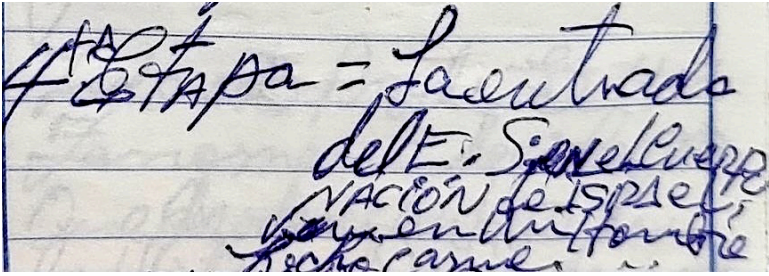 4ta Etapa = La entrada
del E. S. en el Cuerpo
NACIÓN de ISRAEL,
en un Hombre
hecho carne